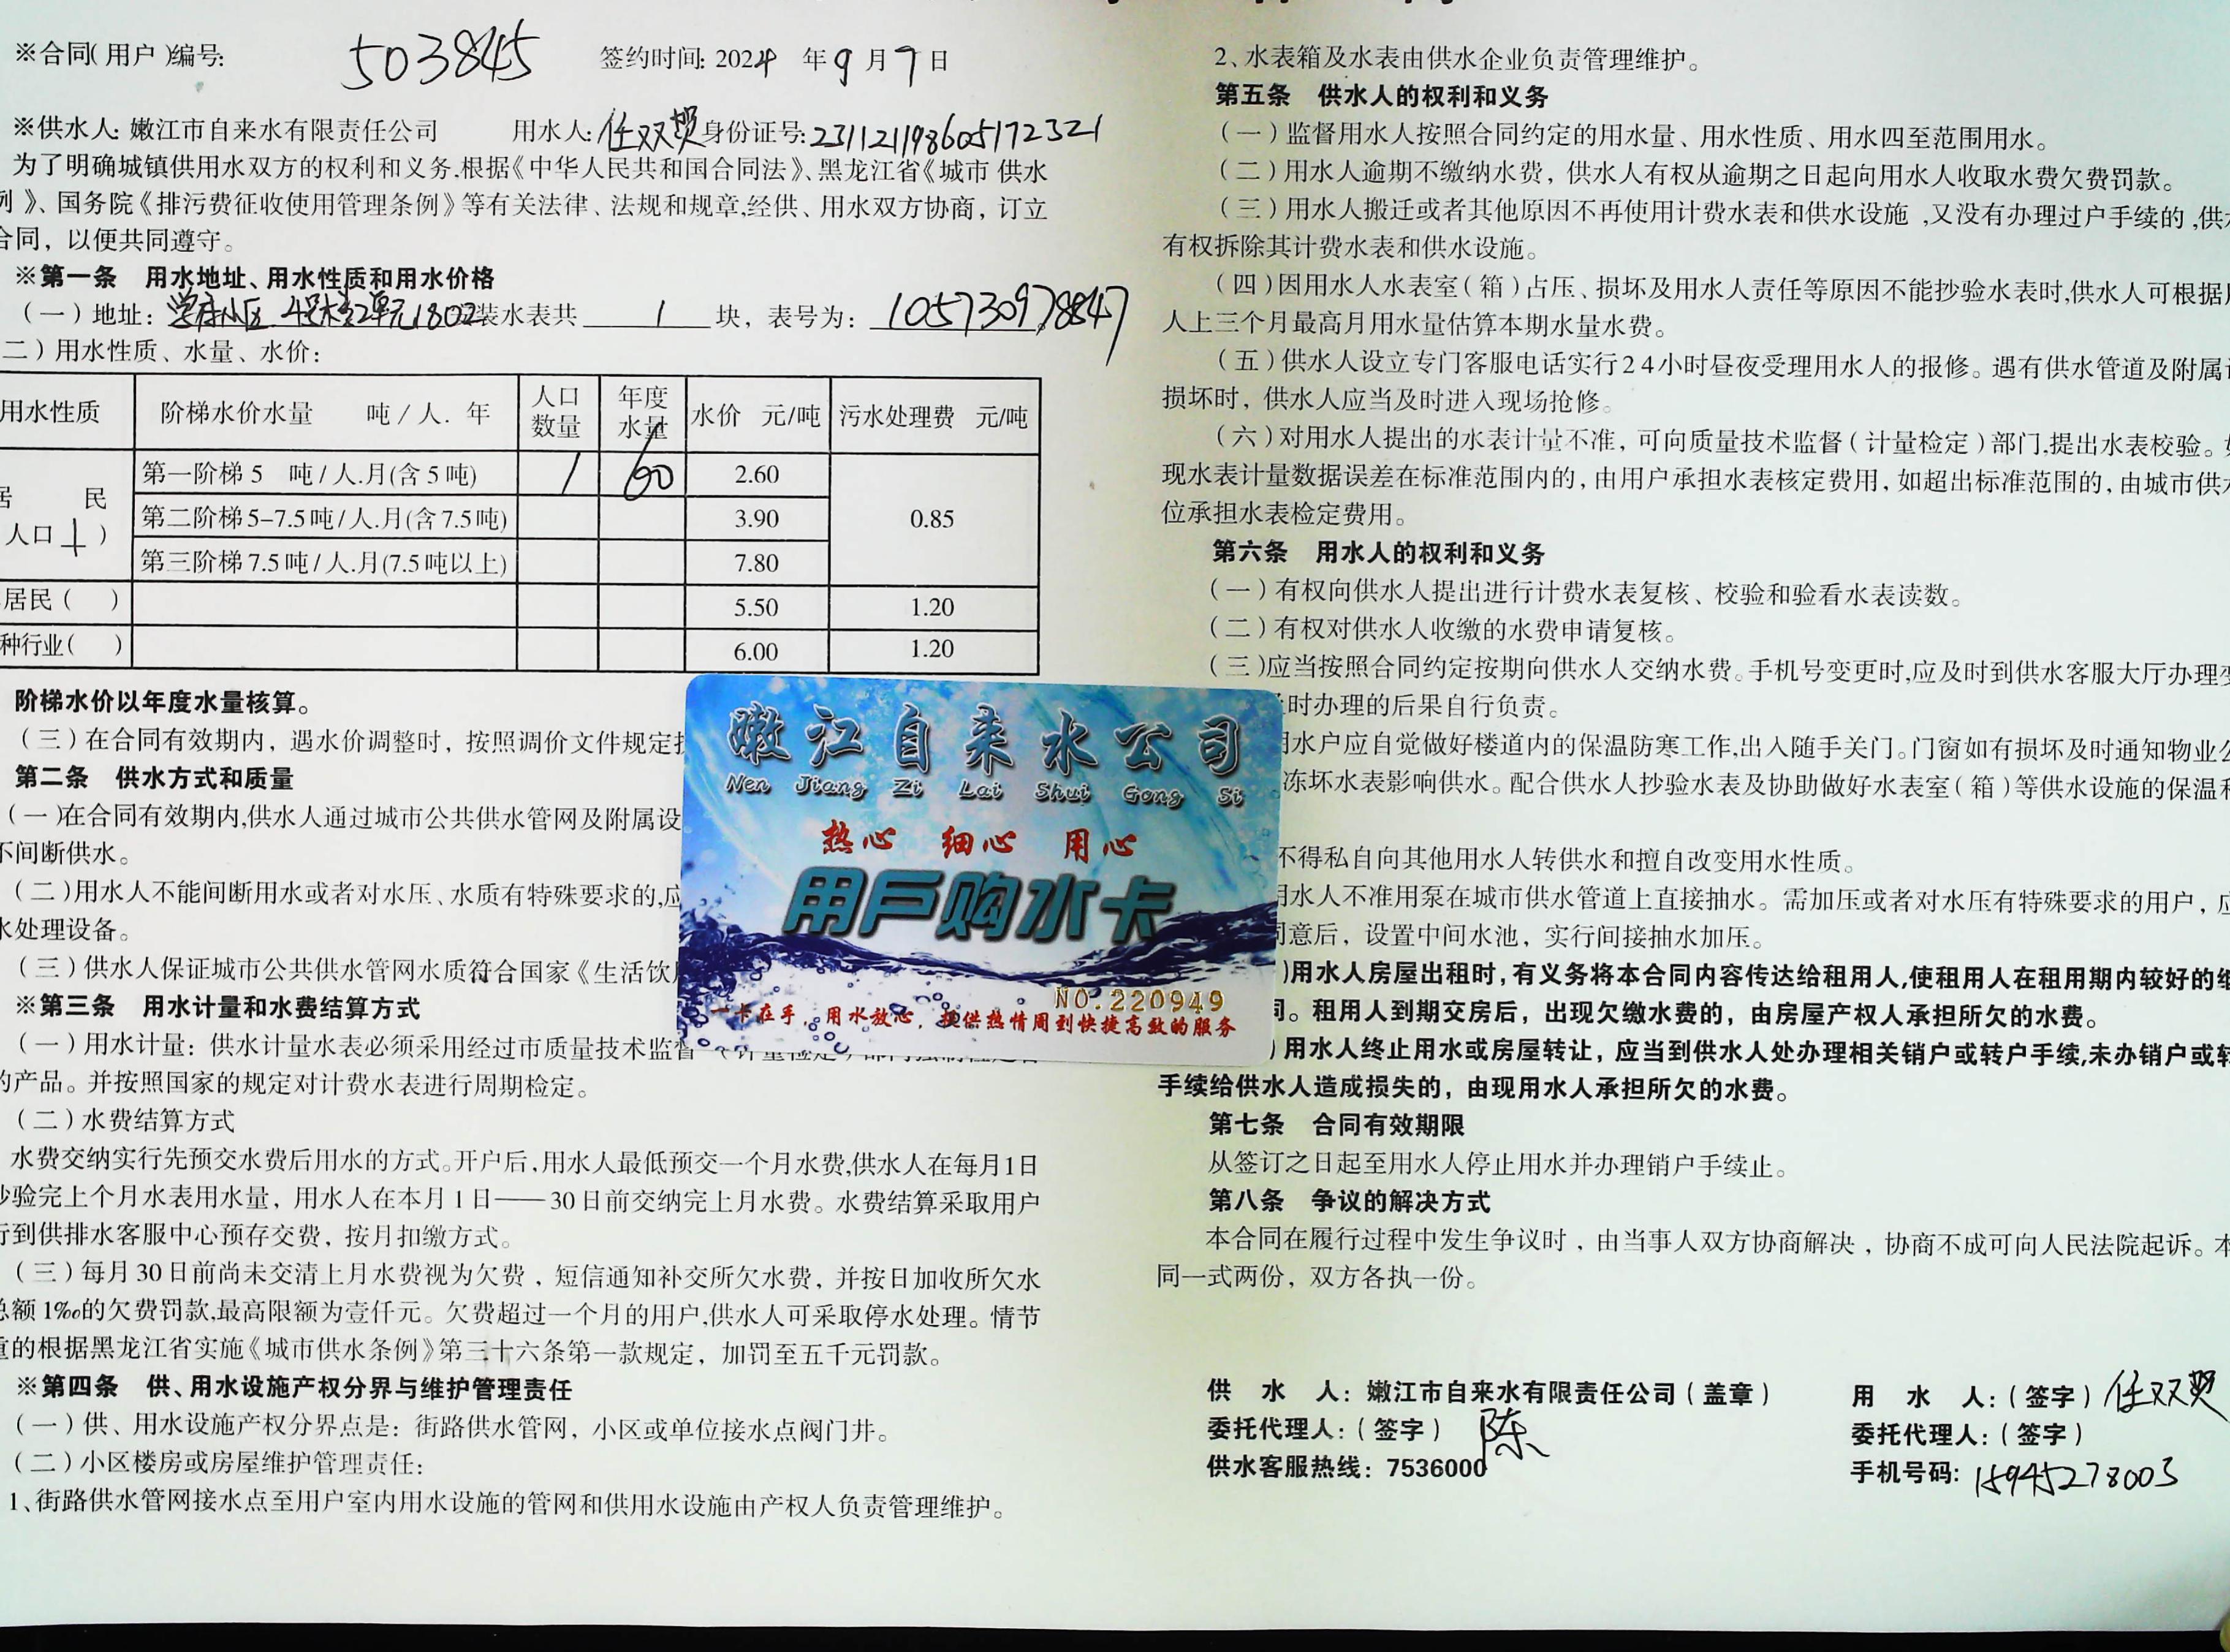 ※合同(用户)编号: 503845 签约时间: 2024 年 9 月 7 日
※供水人: 嫩江市自来水有限责任公司 用水人: 任双 身份证号: 231121198605172321
为了明确城镇供用水双方的权利和义务.根据《中华人民共和国合同法》、黑龙江省《城市 供水
例》、国务院《排污费征收使用管理条例》等有关法律、法规和规章,经供、用水双方协商，订立
合同，以便共同遵守。
※第一条 用水地址、用水性质和用水价格
(一)地址: 学府小区 4号楼2单元1802 装水表共 1 块，表号为: 105730978847
二)用水性质、水量、水价:
用水性质 阶梯水价水量 吨/人. 年 人口数量 年度水量 水价 元/吨 污水处理费 元/吨
居 民 人口 1 )
第一阶梯 5 吨/人.月(含 5 吨) 1 60 2.60 0.85
第二阶梯 5-7.5 吨/人.月(含 7.5 吨) 3.90
第三阶梯 7.5 吨/人.月(7.5 吨以上) 7.80
居民( ) 5.50 1.20
种行业( ) 6.00 1.20
阶梯水价以年度水量核算。
(三)在合同有效期内，遇水价调整时，按照调价文件规定
第二条 供水方式和质量
(一)在合同有效期内,供水人通过城市公共供水管网及附属设
不间断供水。
(二)用水人不能间断用水或者对水压、水质有特殊要求的,应
水处理设备。
(三)供水人保证城市公共供水管网水质符合国家《生活饮
※第三条 用水计量和水费结算方式
(一)用水计量：供水计量水表必须采用经过市质量技术监督
的产品。并按照国家的规定对计费水表进行周期检定。
(二)水费结算方式
水费交纳实行先预交水费后用水的方式。开户后,用水人最低预交一个月水费,供水人在每月1日
抄验完上个月水表用水量，用水人在本月 1 日——30 日前交纳完上月水费。水费结算采取用户
行到供排水客服中心预存交费，按月扣缴方式。
(三)每月 30 日前尚未交清上月水费视为欠费，短信通知补交所欠水费，并按日加收所欠水
总额 1‰的欠费罚款,最高限额为壹仟元。欠费超过一个月的用户,供水人可采取停水处理。情节
重的根据黑龙江省实施《城市供水条例》第三十六条第一款规定，加罚至五千元罚款。
※第四条 供、用水设施产权分界与维护管理责任
(一)供、用水设施产权分界点是：街路供水管网，小区或单位接水点阀门井。
(二)小区楼房或房屋维护管理责任:
1、街路供水管网接水点至用户室内用水设施的管网和供用水设施由产权人负责管理维护。
2、水表箱及水表由供水企业负责管理维护。
第五条 供水人的权利和义务
(一)监督用水人按照合同约定的用水量、用水性质、用水四至范围用水。
(二)用水人逾期不缴纳水费，供水人有权从逾期之日起向用水人收取水费欠费罚款。
(三)用水人搬迁或者其他原因不再使用计费水表和供水设施,又没有办理过户手续的,供水
有权拆除其计费水表和供水设施。
(四)因用水人水表室(箱)占压、损坏及用水人责任等原因不能抄验水表时,供水人可根据
人上三个月最高月用水量估算本期水量水费。
(五)供水人设立专门客服电话实行24小时昼夜受理用水人的报修。遇有供水管道及附属
损坏时，供水人应当及时进入现场抢修。
(六)对用水人提出的水表计量不准，可向质量技术监督(计量检定)部门,提出水表校验。
现水表计量数据误差在标准范围内的，由用户承担水表核定费用，如超出标准范围的，由城市供水
位承担水表检定费用。
第六条 用水人的权利和义务
(一)有权向供水人提出进行计费水表复核、校验和验看水表读数。
(二)有权对供水人收缴的水费申请复核。
(三)应当按照合同约定按期向供水人交纳水费。手机号变更时,应及时到供水客服大厅办理变
时办理的后果自行负责。
用水户应自觉做好楼道内的保温防寒工作,出入随手关门。门窗如有损坏及时通知物业公
冻坏水表影响供水。配合供水人抄验水表及协助做好水表室(箱)等供水设施的保温和
不得私自向其他用水人转供水和擅自改变用水性质。
用水人不准用泵在城市供水管道上直接抽水。需加压或者对水压有特殊要求的用户，应
同意后，设置中间水池，实行间接抽水加压。
)用水人房屋出租时,有义务将本合同内容传达给租用人,使租用人在租用期内较好的
同。租用人到期交房后，出现欠缴水费的，由房屋产权人承担所欠的水费。
)用水人终止用水或房屋转让，应当到供水人处办理相关销户或转户手续,未办销户或转
手续给供水人造成损失的，由现用水人承担所欠的水费。
第七条 合同有效期限
从签订之日起至用水人停止用水并办理销户手续止。
第八条 争议的解决方式
本合同在履行过程中发生争议时，由当事人双方协商解决，协商不成可向人民法院起诉。本
同一式两份，双方各执一份。
供 水 人：嫩江市自来水有限责任公司(盖章)
委托代理人：(签字) 陈
供水客服热线：7536000
用 水 人：(签字) 任双
委托代理人：(签字)
手机号码: 18945278003
嫩江自来水公司
Nen Jiang Zi Lai Shui Gong Si
热心 细心 用心
用户购水卡
NO.220949
一卡在手，用水放心，提供热情周到快捷高效的服务